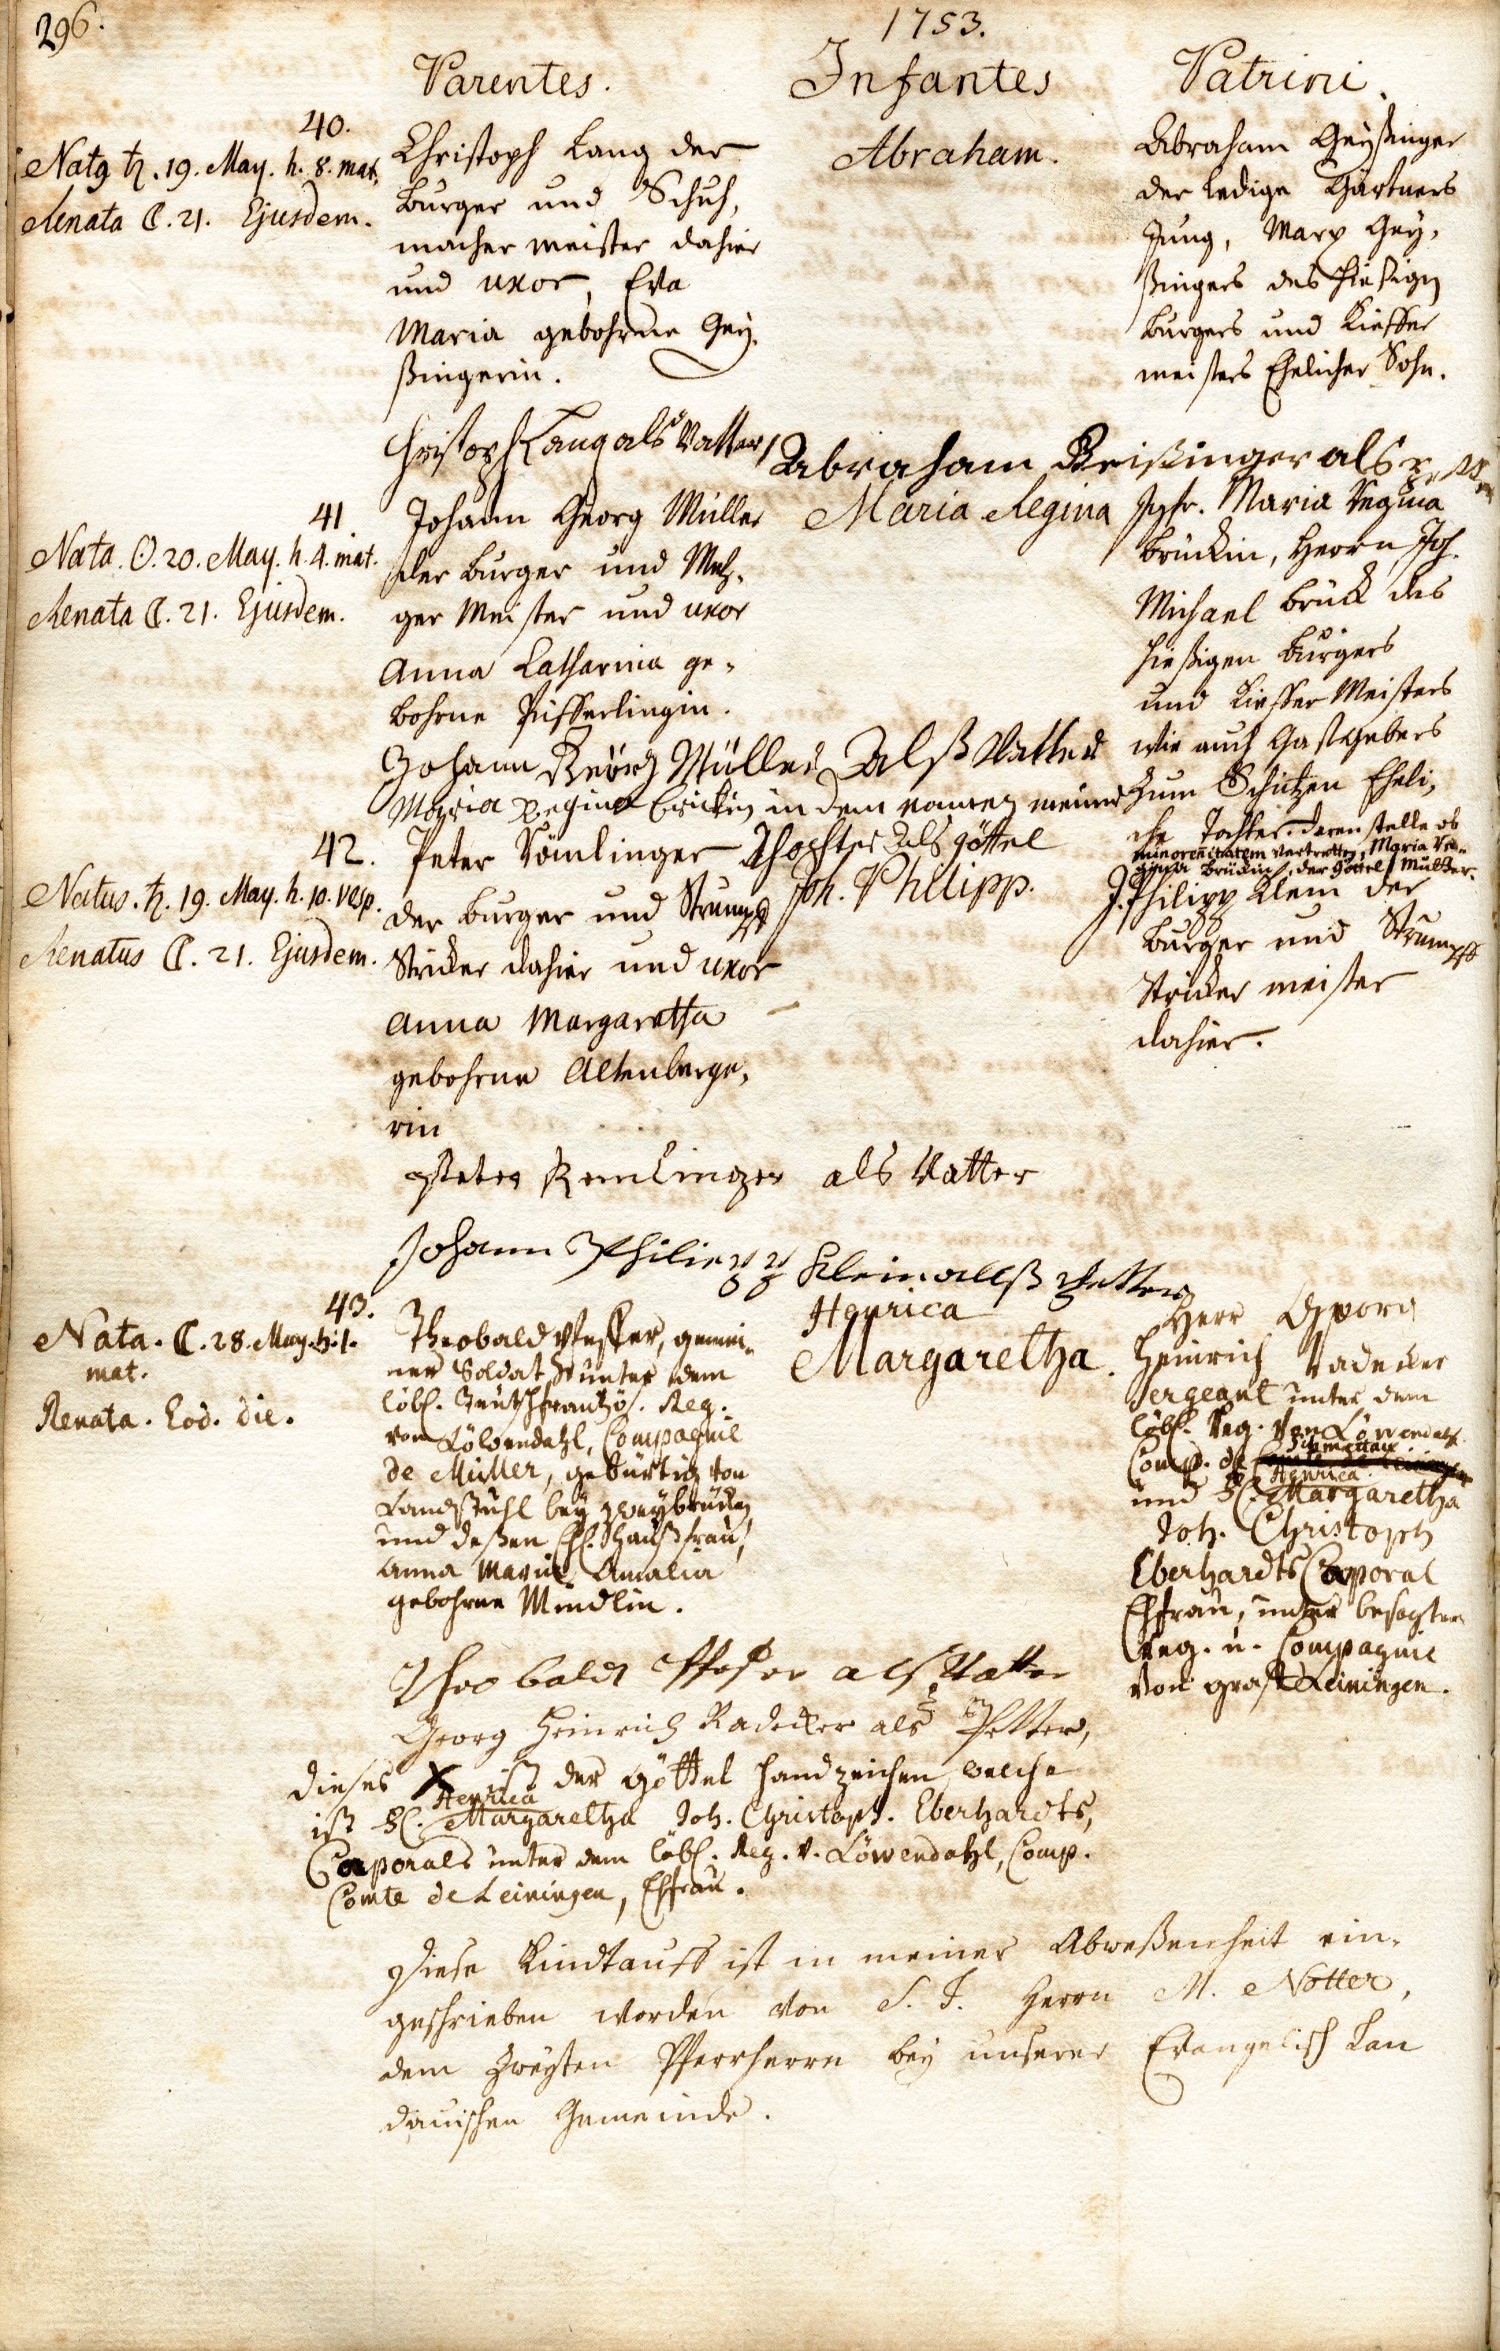 296.
1753.
Parentes.
Infantes
Patrini.
40.
Natq ♄. 19. May. h. 8. mat.
Renata ☾. 21. Ejusdem.
Christoph Lang der
Burger und Schuh,
macher meister dahier
und uxor, Eva
Maria gebohrne Gey,
ßingerin.
Abraham.
Abraham Geyßinger
der ledige Gärtners
Jung, Marx Gey,
ßingers des hießigen
burgers und Kieffer
meisters Ehelicher Sohn.
Christoph Lang als Vatter
Abraham Geißinger als
41.
Nata. ☉. 20. May. h. 4. mat.
Renata ☾. 21. Ejusdem.
Johann Georg Müller
der burger und Metz,
ger Meister und uxor
Anna Catharina ge,
bohrne Pfifferlingin.
Maria Regina
Jgfr. Maria Regina
brückin, Herrn Joh.
Michael brück des
hießigen burgers
und Kieffer Meisters
wie auch Gastgebers
zum Schützen Eheli,
che Tochter. deren stelle ob
minorennitatem vertretten, Maria Re-
gina brückin, der Göttel Mutter.
Johann Georg Müller Alß Vatter
Maria Regina brickin in dem namen meiner
Thochter als göttel
42.
Natus. ♄. 19. May. h. 10. vesp.
Renatus ☾. 21. Ejusdem.
Peter Römlinger
der burger und Strumpff
Stricker dahier und uxor
Anna Margaretha
gebohrne Altenberge,
rin
Joh. Philipp.
J. Philipp Klem der
burger und Strumpff
Stricker meister
dahier.
Peter Remlinger als Vatter
Johann Philipp Klem allß Petter
43.
Nata. ☾. 28. May. h. 1.
mat.
Renata. Eod. die.
Theobald Pfeffer, gemei-
ner Soldat unter dem
löbl. Teutschfrantzös. Reg.
von Löwendahl, Compagnie
de Müller, gebürtig von
Landstuhl bey Zweybrücken
und deßen Ehl. Haußfrau,
Anna Maria Amalia
gebohrne Mindlin.
Henrica
Margaretha.
Herr Georg
Heinrich Radecker
Sergeant unter dem
löbl. Reg. von Löwendahl
Comp. de
und Fr. Henrica
Margaretha
Joh. Christoph
Eberhardts Caporal
Ehfrau, unter besagtem
Reg. u. Compagnie
von graff Leiningen.
Theobaldt Pfefer als Vatter
Georg Heinrich Radecker als Petter,
dieses X ist der Göttel handzeichen, welche
ist Fr. Henrica
Margaretha Joh. Christoph. Eberhardts,
Caporals unter dem löbl. Reg. v. Löwendahl, Comp.
Comte de Leiningen, Ehfrau.
Diese Kindtauff ist in meiner Abweßenheit ein,
geschrieben worden von S. T. Herrn M. Notter,
dem zweyten Pfarrherrn bey unserer Evangelisch Lan
dauischen Gemeinde.